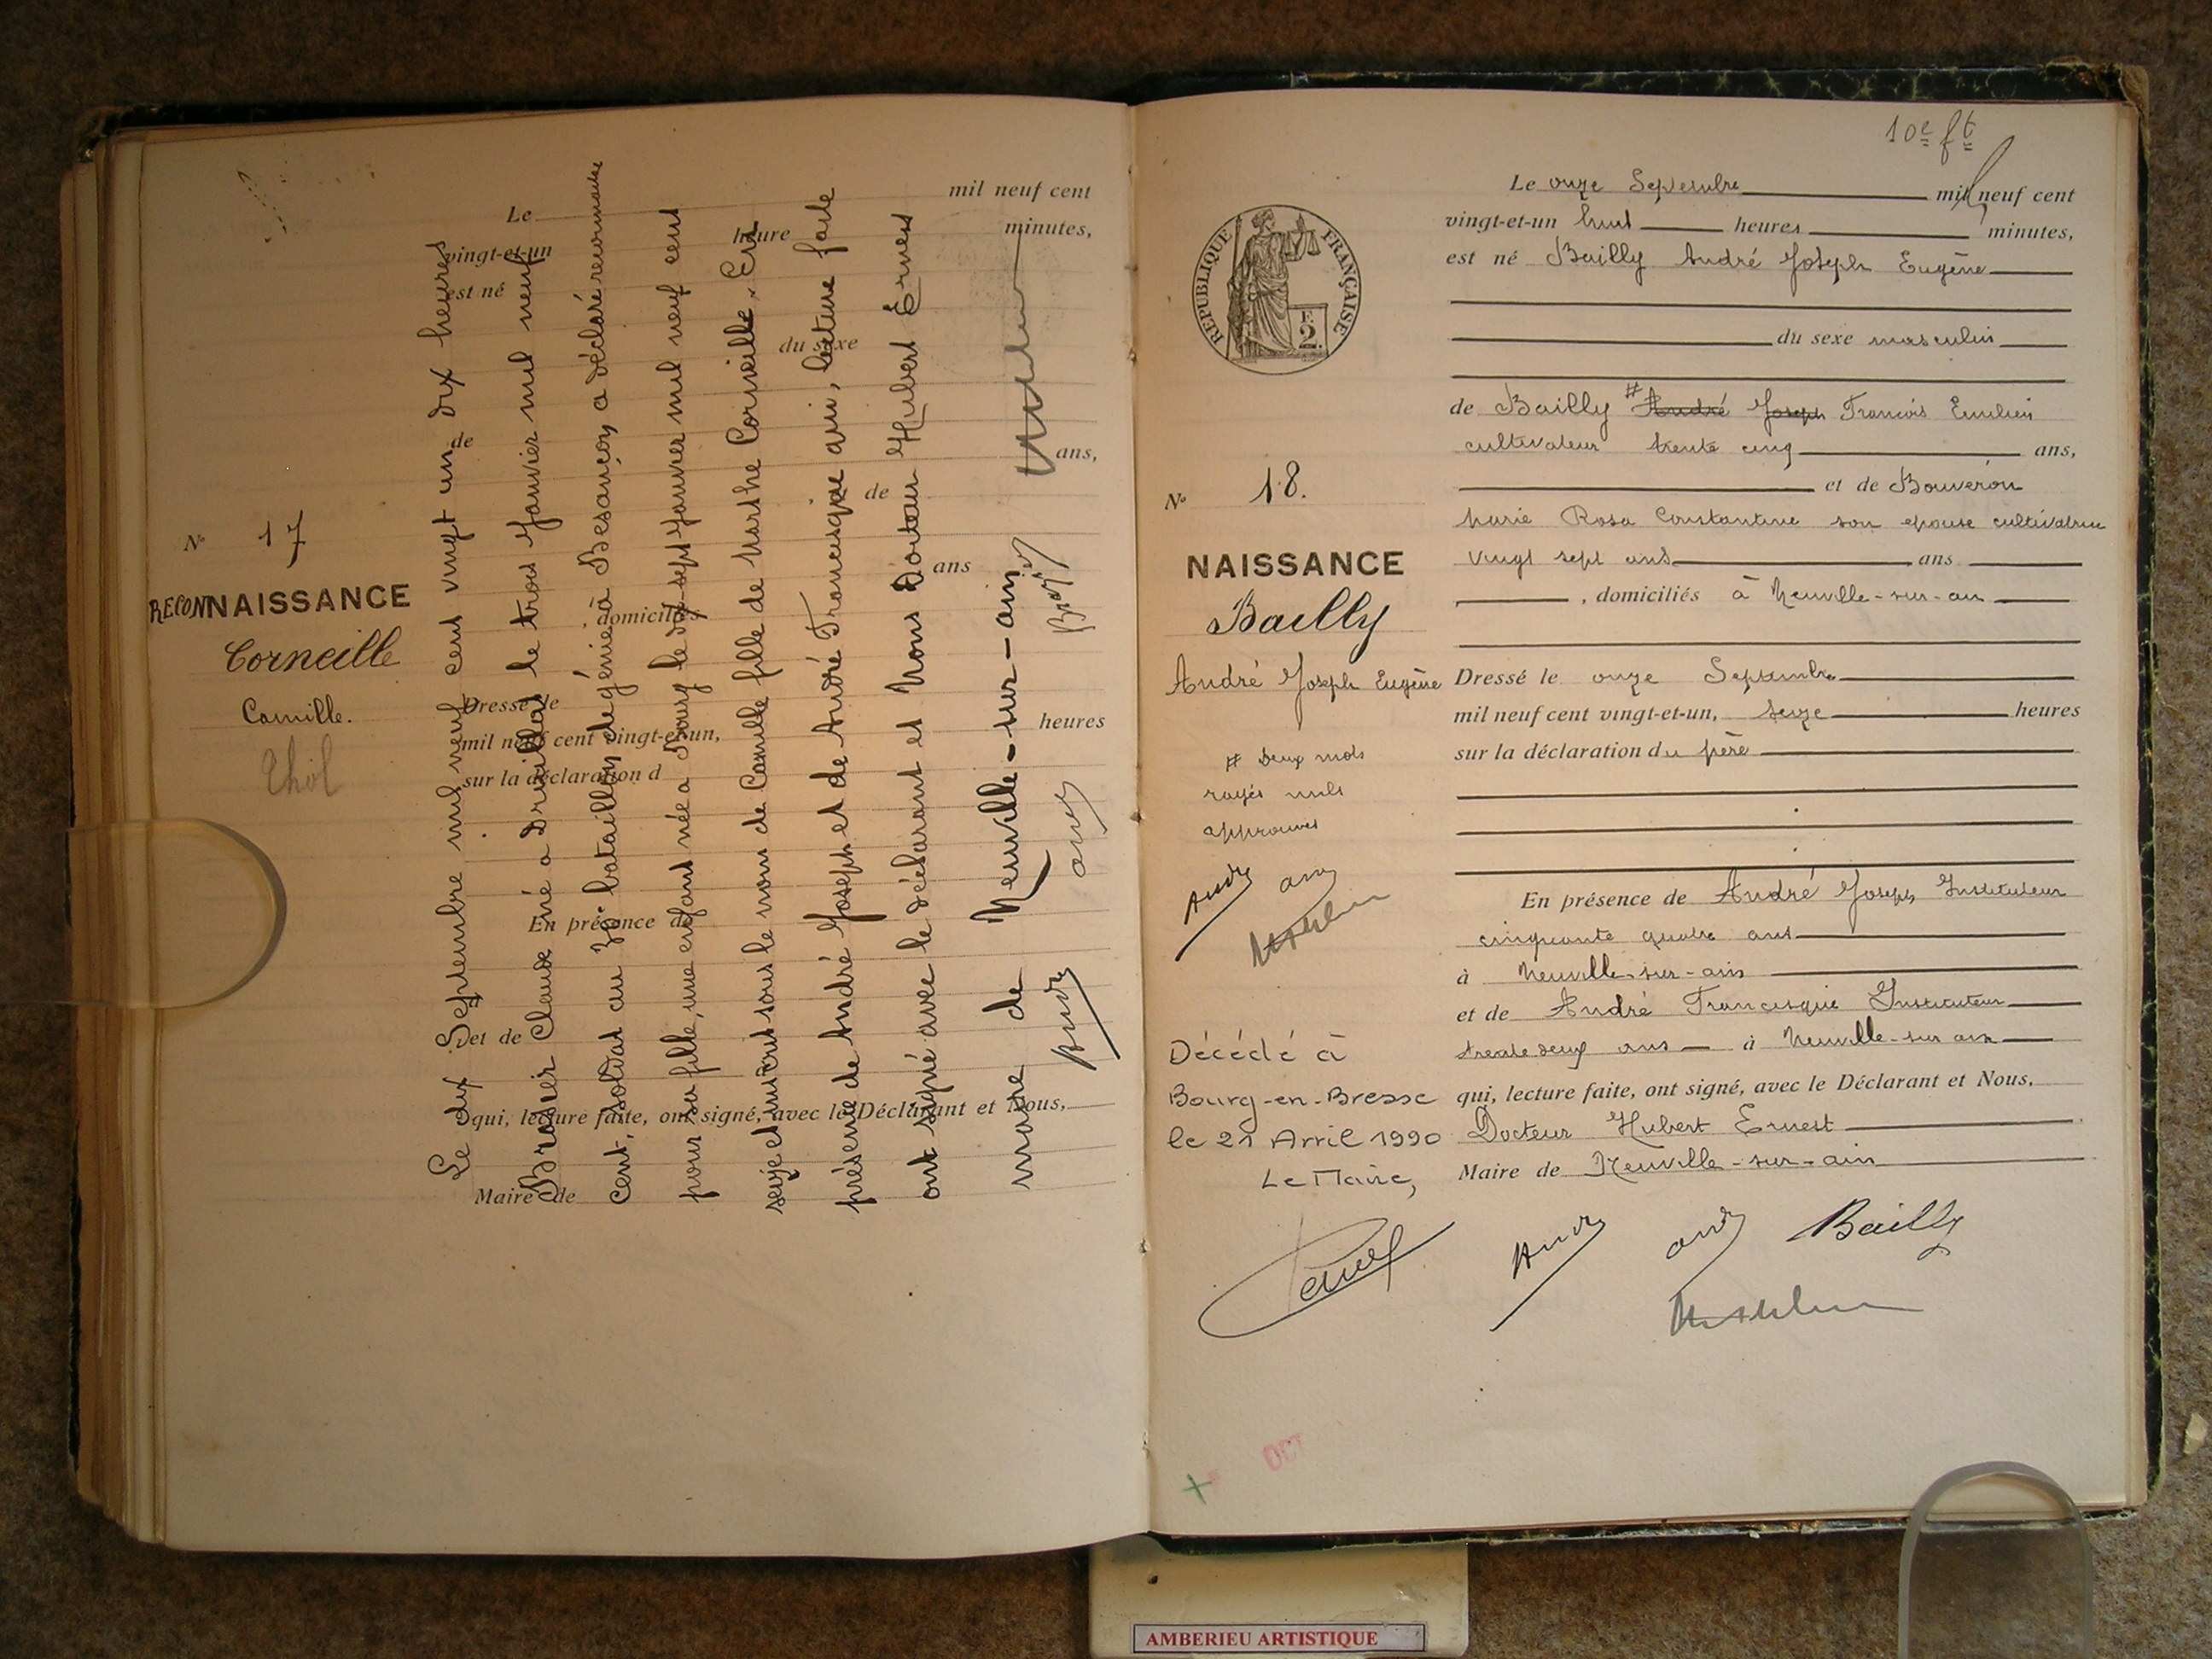 N° 17
RECONNAISSANCE
Corneille
Camille.
Thol
Le mil neuf cent
vingt-et-un heure minutes,
est né
du sexe
de
ans,
de
ans
, domiciliés
Dressé le
mil neuf cent vingt-et-un, heures
sur la déclaration d
En présence de
et de
qui, lecture faite, ont signé, avec le Déclarant et Nous,
Maire de
Le dix Septembre mil neuf cent vingt un dix heures
Brasier Claude né a Druillat le trois Janvier mil neuf
cent, soldat au 30e bataillon de génie à Besançon, a déclaré reconnaitre
pour sa fille, une enfant née a Bourg le dix-sept Janvier mil neuf cent
seize et inscrit sous le nom de Camille fille de Marthe Corneille. En
présence de André Joseph et de André Francisque qui, lecture faite
ont signé avec le déclarant et Nous Docteur Hubert Ernest
maire de Neuville-sur-ain
10e ft
RÉPUBLIQUE FRANÇAISE
F.
2.
Le onze Septembre mil neuf cent
vingt-et-un huit heures minutes,
est né Bailly André Joseph Eugène
du sexe masculin
de Bailly # André Joseph Francois Emilien
cultivateur trente cinq ans,
et de Bouveron
Marie Rosa Constantine son epouse cultivatrice
vingt sept ans ans
, domiciliés à Neuville-sur-ain
N° 18.
NAISSANCE
Bailly
André Joseph Eugène
# Deux mots
rayés nuls
approuvés
Dressé le onze Septembre
mil neuf cent vingt-et-un, seize heures
sur la déclaration du père
En présence de André Joseph Instituteur
cinquante quatre ans
à Neuville-sur-ain
et de André Francisque Instituteur
trente deux ans à Neuville-sur ain
qui, lecture faite, ont signé, avec le Déclarant et Nous,
Docteur Hubert Ernest
Maire de Neuville-sur-ain
Décédé à
Bourg-en-Bresse
le 21 Avril 1990
Le Maire,
Bailly
OCT
AMBERIEU ARTISTIQUE